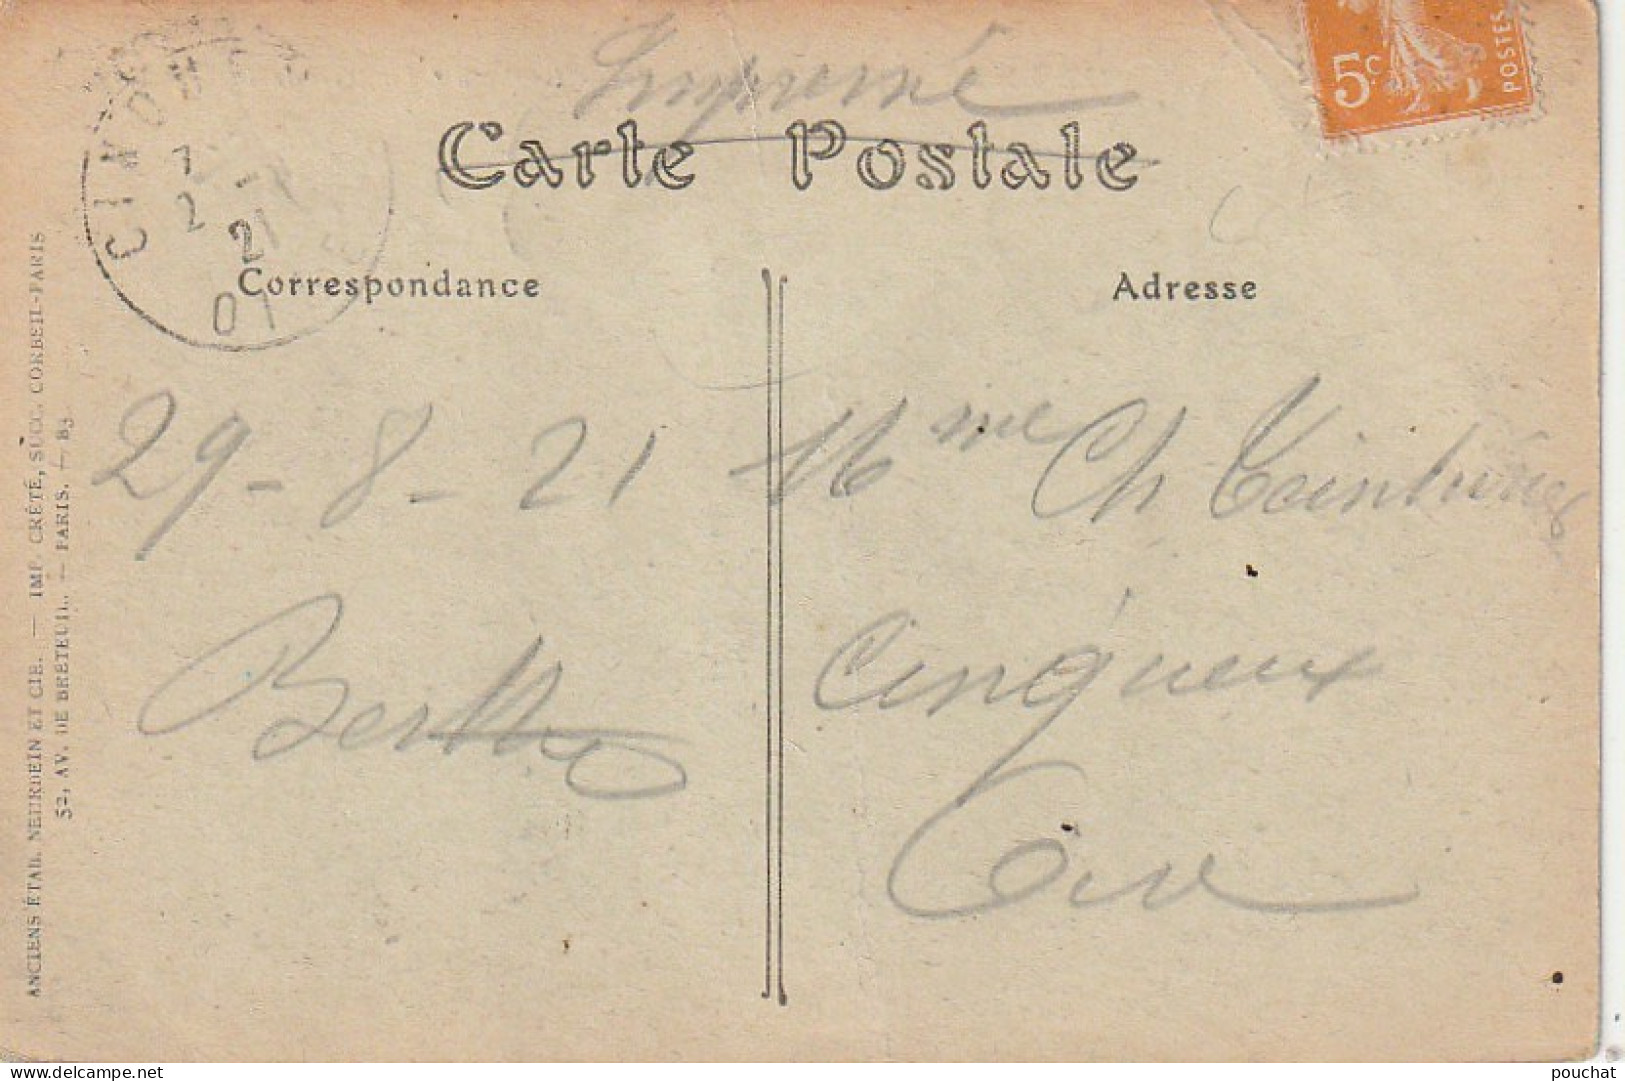 Imprimé
Carte Postale
5c
POSTES
7
2
21
Correspondance
Adresse
29-8-21
Berthe
Mme Ch
Cinqueux
Oise
ANCIENS ÉTAB. NEURDEIN ET CIE. — IMP. CRÉTÉ, SUCC. CORBEIL-PARIS
52, AV. DE BRETEUIL. — PARIS. — 83
pouchat